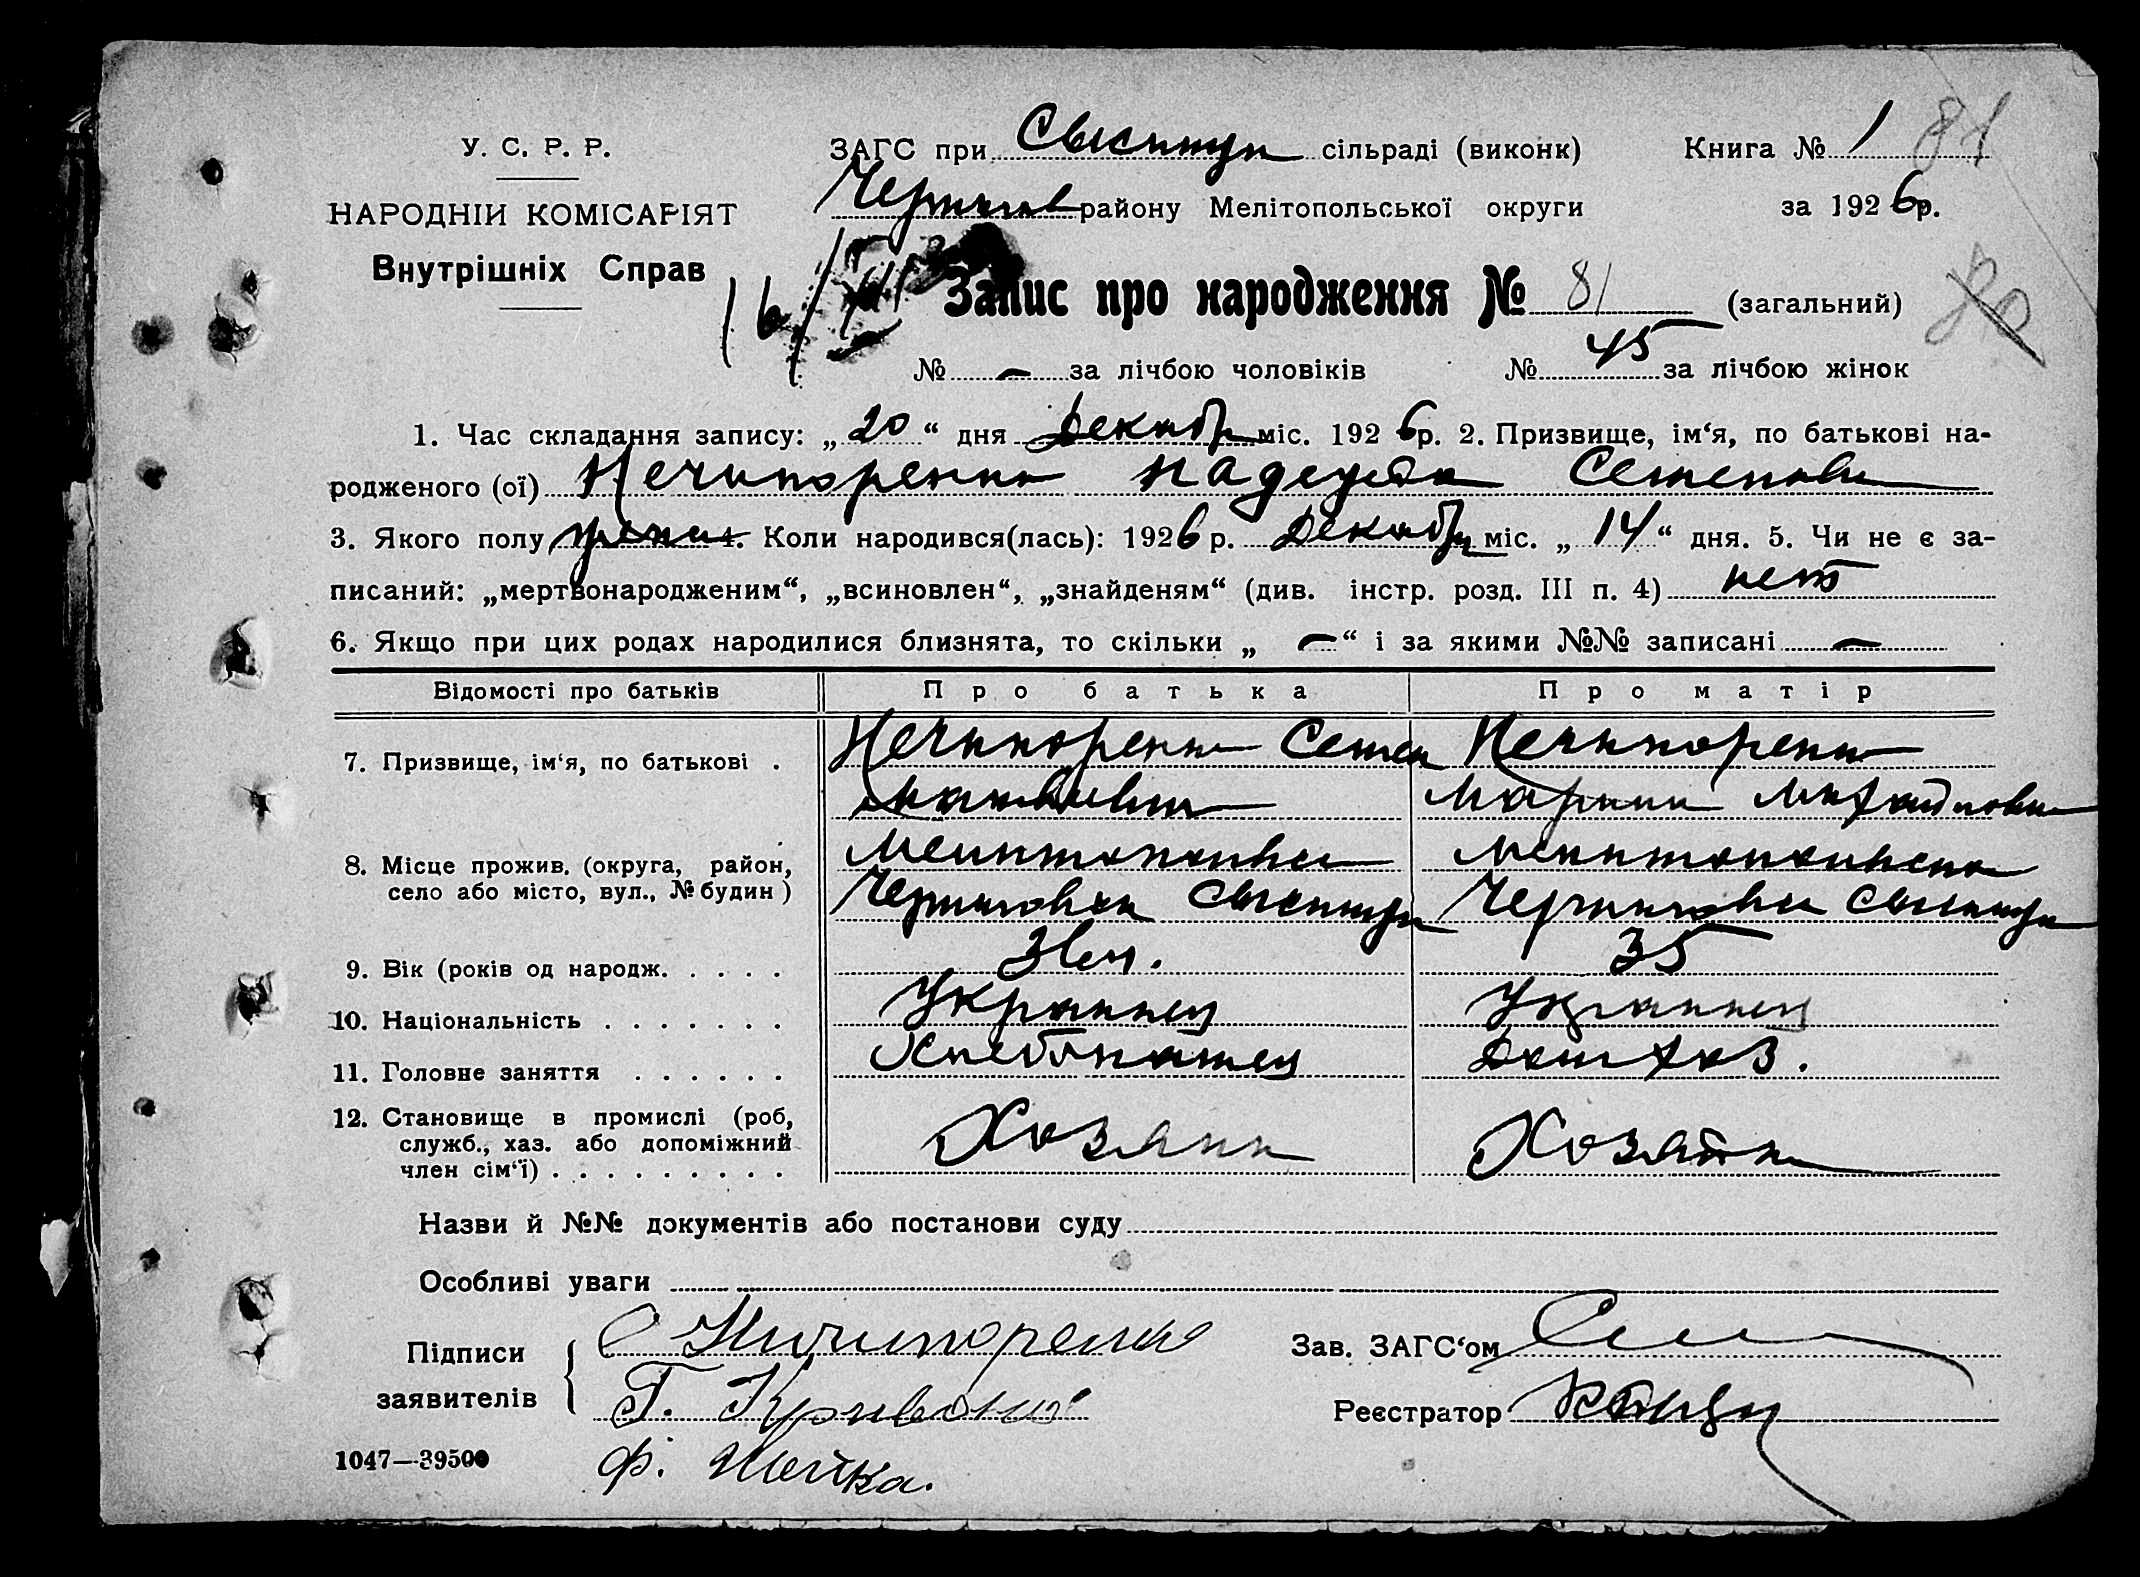 У. С. Р. Р.
НАРОДНІЙ КОМІСАРІЯТ
Внутрішніх Справ
ЗАГС при сільраді (виконк)
Книга № 1 81
району Мелітопольської округи
за 1926 р.
Запис про народження № 81 (загальний)
№ — за лічбою чоловіків № 45 за лічбою жінок
1. Час складання запису: „20“ дня Декабр міс. 1926 р. 2. Призвище, ім‘я, по батькові на-
родженого (ої) Нечипоренко Надежда Семеновн
3. Якого полу женск 4. Коли народився(лась): 1926 р. Декабр міс. „14“ дня. 5. Чи не є за-
писаний: „мертвонародженим“, „всиновлен“, „знайденям“ (див. інстр. розд. III п. 4) нет
6. Якщо при цих родах народилися близнята, то скільки „ — “ і за якими №№ записані —
Відомості про батьків Про батька Про матір
7. Призвище, ім‘я, по батькові . Нечипоренко Семен Нечипоренко
Матвеевич Марина Михайловн
8. Місце прожив. (округа, район,
село або місто, вул., № будин )
9. Вік (років од народж. . . . . 35
10. Національність . . . . . . . Украинец Украинец
11. Головне заняття . . . . . . Хлебопашец Домхоз.
12. Становище в промислі (роб,
служб., хаз. або допоміжний
член сім‘ї) . . . . . . . . . Хозяин Хозяйка
Назви й №№ документів або постанови суду
Особливі уваги
Підписи
заявителів
С Ничипоренко
Г.
Ф.
Зав. ЗАГС‘ом
Реєстратор
1047—39500